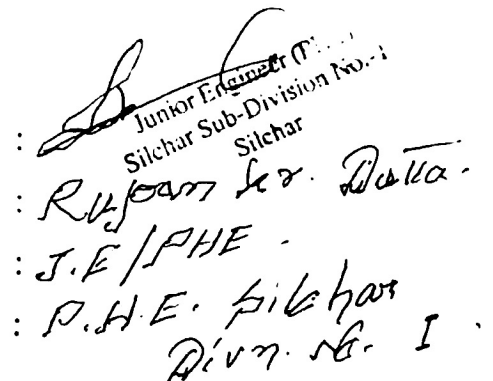 :
Junior Engineer
Silchar Sub-Division No.-I
Silchar
: Rupam Kr. Dutta.
: J.E/PHE.
: P.H.E. Silchar
Divn. No. I.